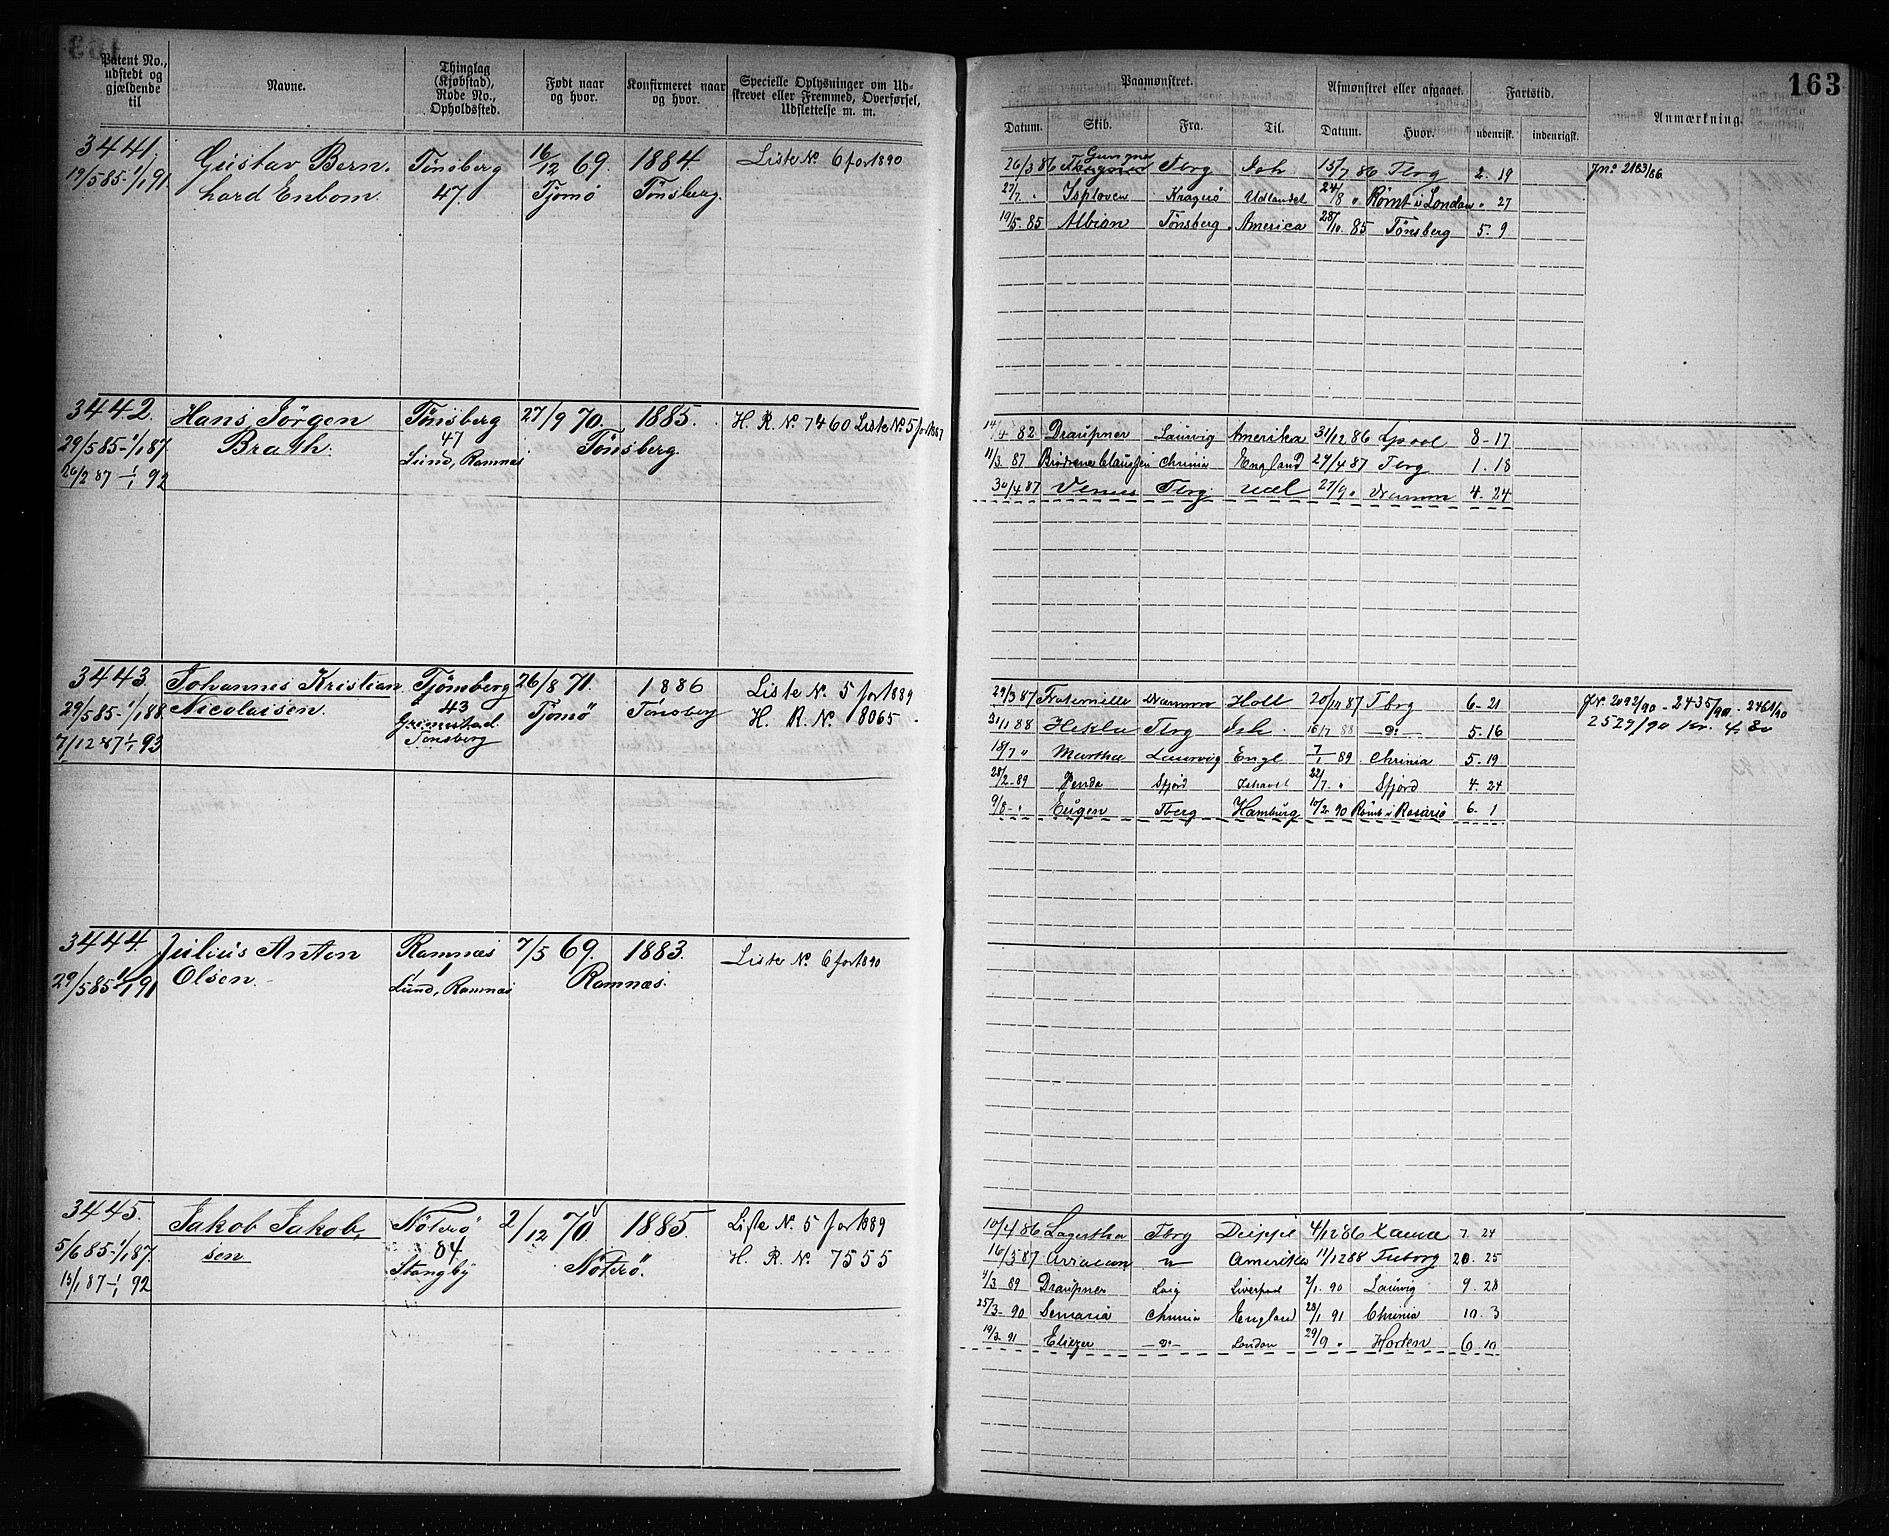 163
Patent No., udstedt og gjældende til
Navne.
Thinglag (Kjøbstad), Rode No., Opholdssted.
Født naar og hvor.
Konfirmeret naar og hvor.
Specielle Oplysninger om Udskrevet eller Fremmed, Overførsel, Udslettelse m. m.
Paamønstret.
Afmønstret eller afgaaet.
Fartstid.
Anmærkning.
Datum. Skib. Fra. Til. Datum. Hvor. udenrist. indenrigst.
3441. Gustav Bern- Tönsberg 16/12 69. 1884. Liste No 6 for 1890
19/5 85-1/1 91 hard Enbom. 47. Tjømø Tönsberg.
26/3 86 Gungner Tbrg Ish. 15/7 86 Tbrg 2. 19 Jno 2183/86
27/7 " Isploven Kragerö Udlandet 24/8 " Römt i London " 27
19/5. 85 Albion Tönsberg America 28/10. 85 Tönsberg 5. 9
3442. Hans Jörgen Tönsberg 27/9 70. 1885. H. R. No 7460 Liste No 5 for 1887
29/5 85-1/1 87 Brath. 47 Tönsberg
26/2 87 - 1/1 92 Lund, Ramnæs
14/4 82 Draupner Laurvig Amerika 31/12 86 Lpool 8-17
11/3. 87 Brödrene Claussen Chrinia England 29/4 87 Tbrg 1. 18
30/4 87 Venus Tbrg Udl 27/9 " Dramm 4. 24
3443. Johannes Kristian Tjömsberg 26/8 71. 1886 Liste No. 5 for 1889
29/5 85-1/1 88 Nicolaisen. 43 Tjømø Tönsberg H. R. No 8065.
7/12 87 1/1 93 Grimestad Tönsberg
29/3 87 Fraternitte Dramm Holl 20/10 87 Tbrg 6-21 Jr. 2092/90 - 2435/90 - 2461/90
31/1 88 Hekla Tbrg Ish. 16/7 88 -do- 5. 16 2529/90 Kr. 4, 80
18/7 " Martha Laurvig Engl 7/1 89 Chrinia 5. 19
28/2-89 Penda Sfjord Ishavet 22/7. " Sfjord 4. 24
9/8 - " Eugen Tberg Hamburg 10/2 90 Römt i Rosario 6. 1
3444. Julius Anton Ramnæs 7/5 69. 1883. Liste No. 6 for 1890
29/5 85 1/1 91 Olsen. 1 Ramnæs.
Lund, Ramnæs
3445. Jakob Jakob- Nöterö 2/12 70. 1885. Liste No. 5 for 1889
5/6 85-1/1 87. sen 84. Nöterö. H. R. No. 7555
15/1 87-1/1 92 Stangby
10/4 86 Lagertha Tbrg Deippe 4/12 86 7. 24
16/3 87 Amerika 11/12 88 20. 25
4/3 89 Draupner Liverpool 2/1. 90 Laurvig 9. 28
25/3-90 Semaria Chrinia England 28/1 91 Chrinia 10. 3
19/3. 91 Eliezer -do- London 29/9 " Horten 6. 10